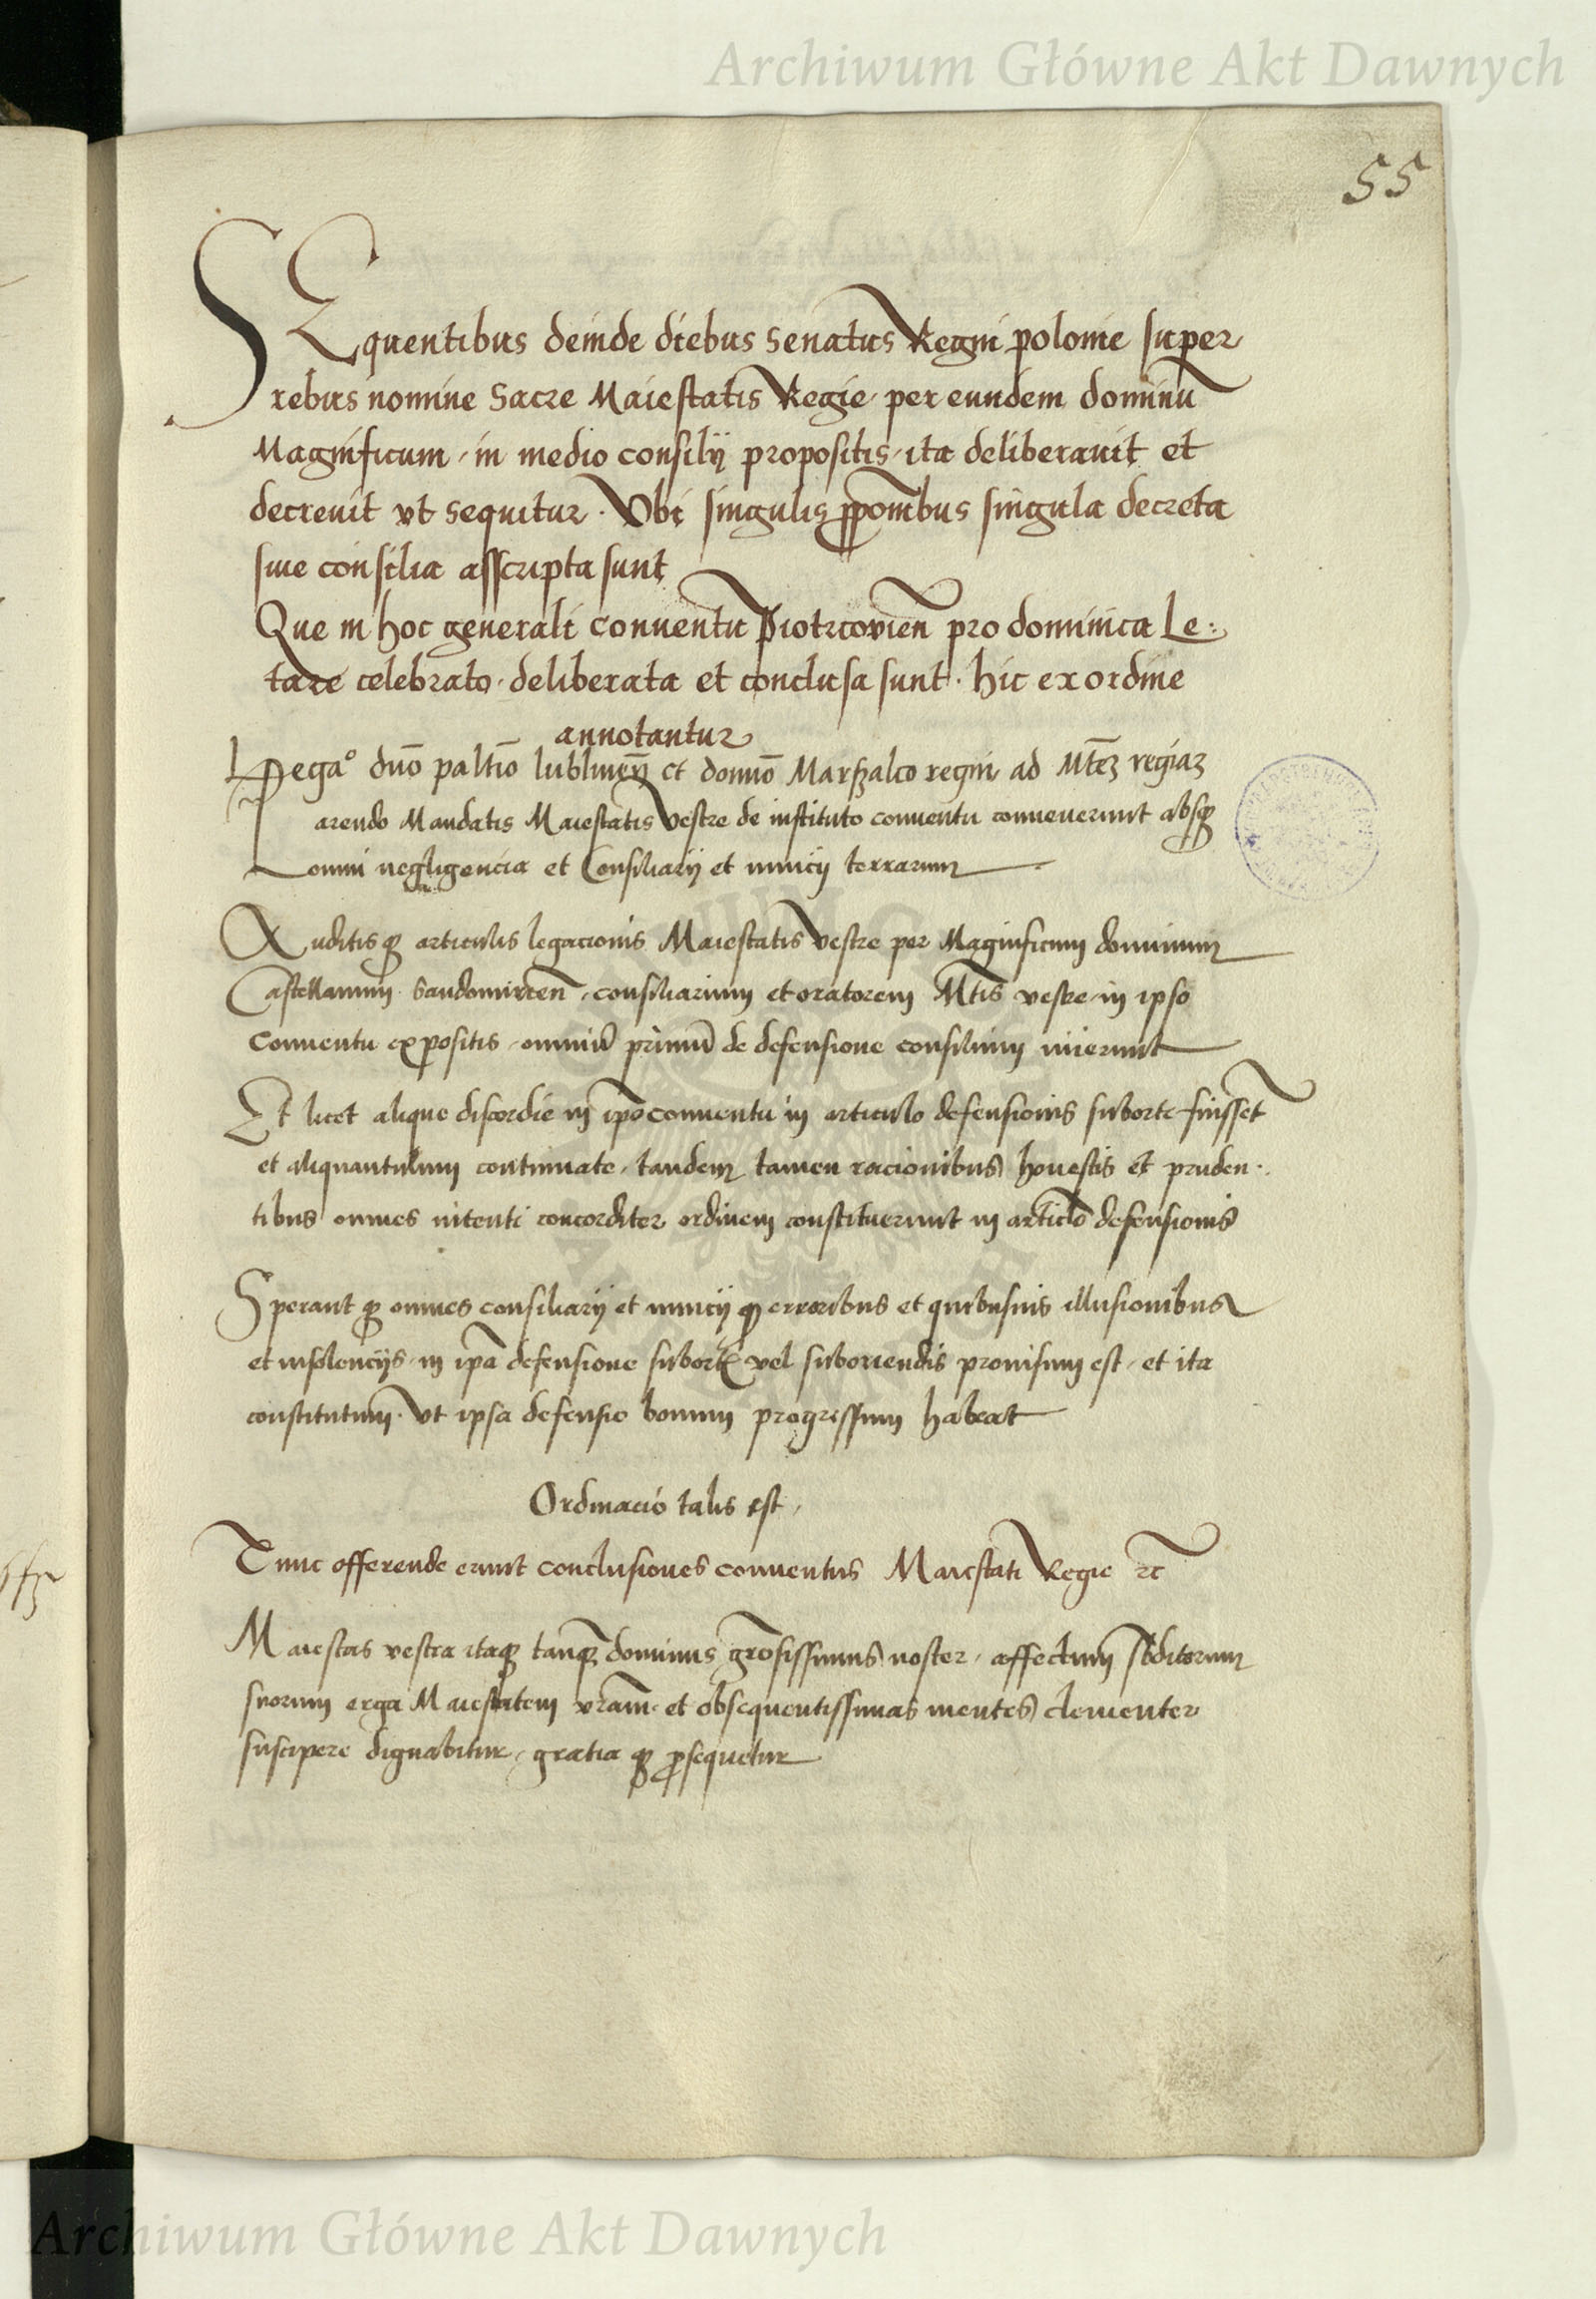 Archiwum Główne Akt Dawnych
55
SEquentibus deinde diebus Senatus Regni polonie super
rebus nomine Sacre Maiestatis Regie per eundem dominū
Magnificum, in medio consilij propositis, ita deliberauit et
decreuit vt sequitur. Vbi singulis ꝓpoūibus singula decreta
siue consilia asscripta sunt
Que in hoc generali conuentu Piotrcovień pro dominica Le:
tare celebrato, deliberata et conclusa sunt. hic ex ordine
annotantur
Legaᵒ dnō paltīo lublinēn et domnō Marszalco regni ad Mtēz regiaz
Parendo Mandatis Maiestatis vestre de instituto conuentu conuenerunt absqꝫ
omni negligencia et Consiliarij et nuncij terrarum
Auditisqꝫ articulis legacionis Maiestatis vestre per Magnificum dominum
Castellanum Sandomirień, consiliarium et oratorem Mtīs vestre in ipso
Conuentu expositis, omniū primū de defensione consilium inierunt
Et licet alique discordie in ipō conuentu in articulo defensionis suborte fuissēt
et aliquantulum continuate, tandem tamen racionibus honestis et pruden.
tibus omnes intenti concorditer ordinem constituerunt in articlō defensionis
Sperantqꝫ omnes consiliarij et nuncij ꝙ erroribus et quibusuis illusionibus
et insolencijs in ipā defensione subortꝭ vel suboriendis prouisum est, et ita
constitutum. Vt ipsa defensio bonum progressum habeat
Ordinacio talis est,
Tunc offerende erunt conclusiones conuentus Maiestati Regie ꝛc̄
Maiestas vestra itaqꝫ tanqꝫ dominus grōsissimus noster, affectum sbditorum
suorum erga Maiestatem vrām, et obsequentissimas mentes clementer
suscipere dignabitur, gratiaqꝫ ꝓsequetur
Archiwum Główne Akt Dawnych